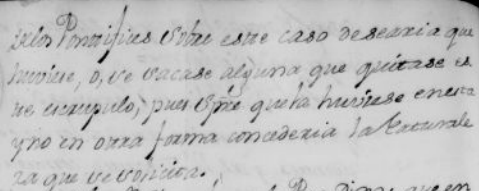 delos Pontifices sobre este caso desearia que
huviese, o, se sacase alguna que quitase es
te escrupulo, pues spre que la huviese en esta
y no en otra forma concederia la Naturale
za que se solicita.